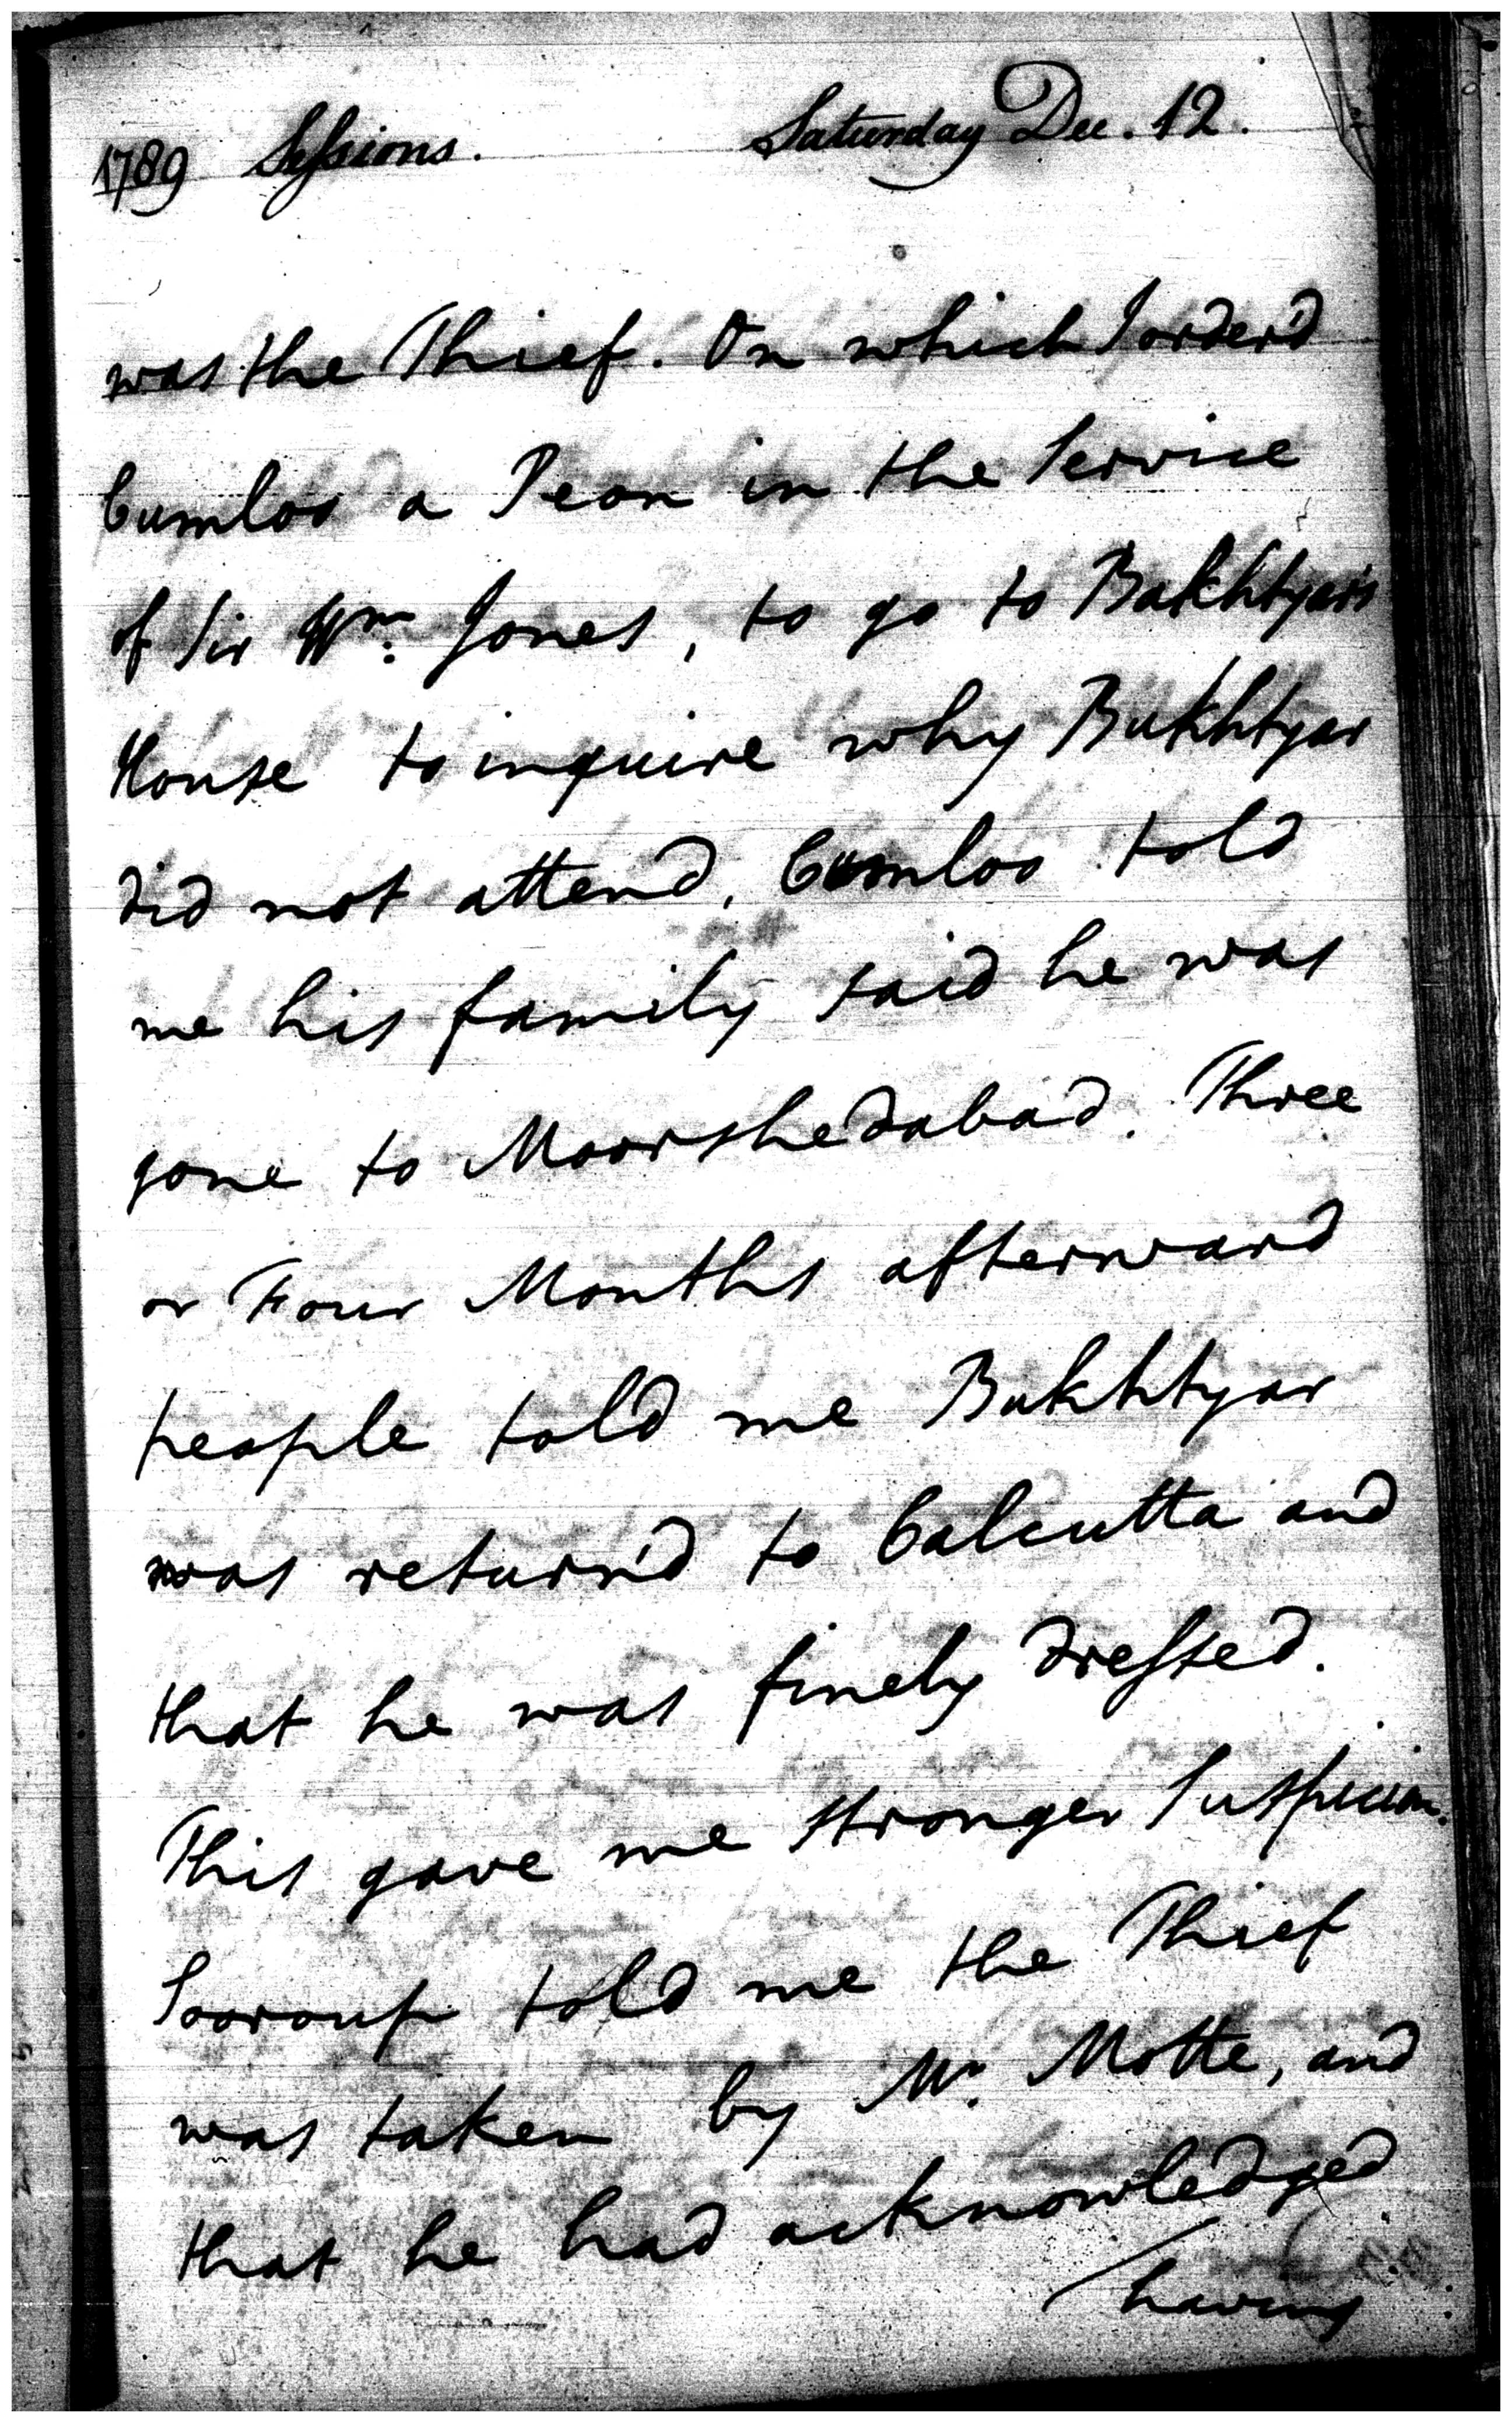 1789 Sessions. Saturday Dec. 12.
was the Thief. On which I order'd
Cumloo a Peon in the Service
of Sir Wm: Jones, to go to Bukhtyar's
House to inquire why Bukhtyar
did not attend, Cumloo told
me his family said he was
gone to Moorshedabad. Three
or Four Months afterward
people told me Bukhtyar
was return'd to Calcutta and
that he was finely dressed.
This gave me stronger Suspicion.
Sooroup told me the Thief
was taken by Mr. Motte, and
that he had acknowledged
having